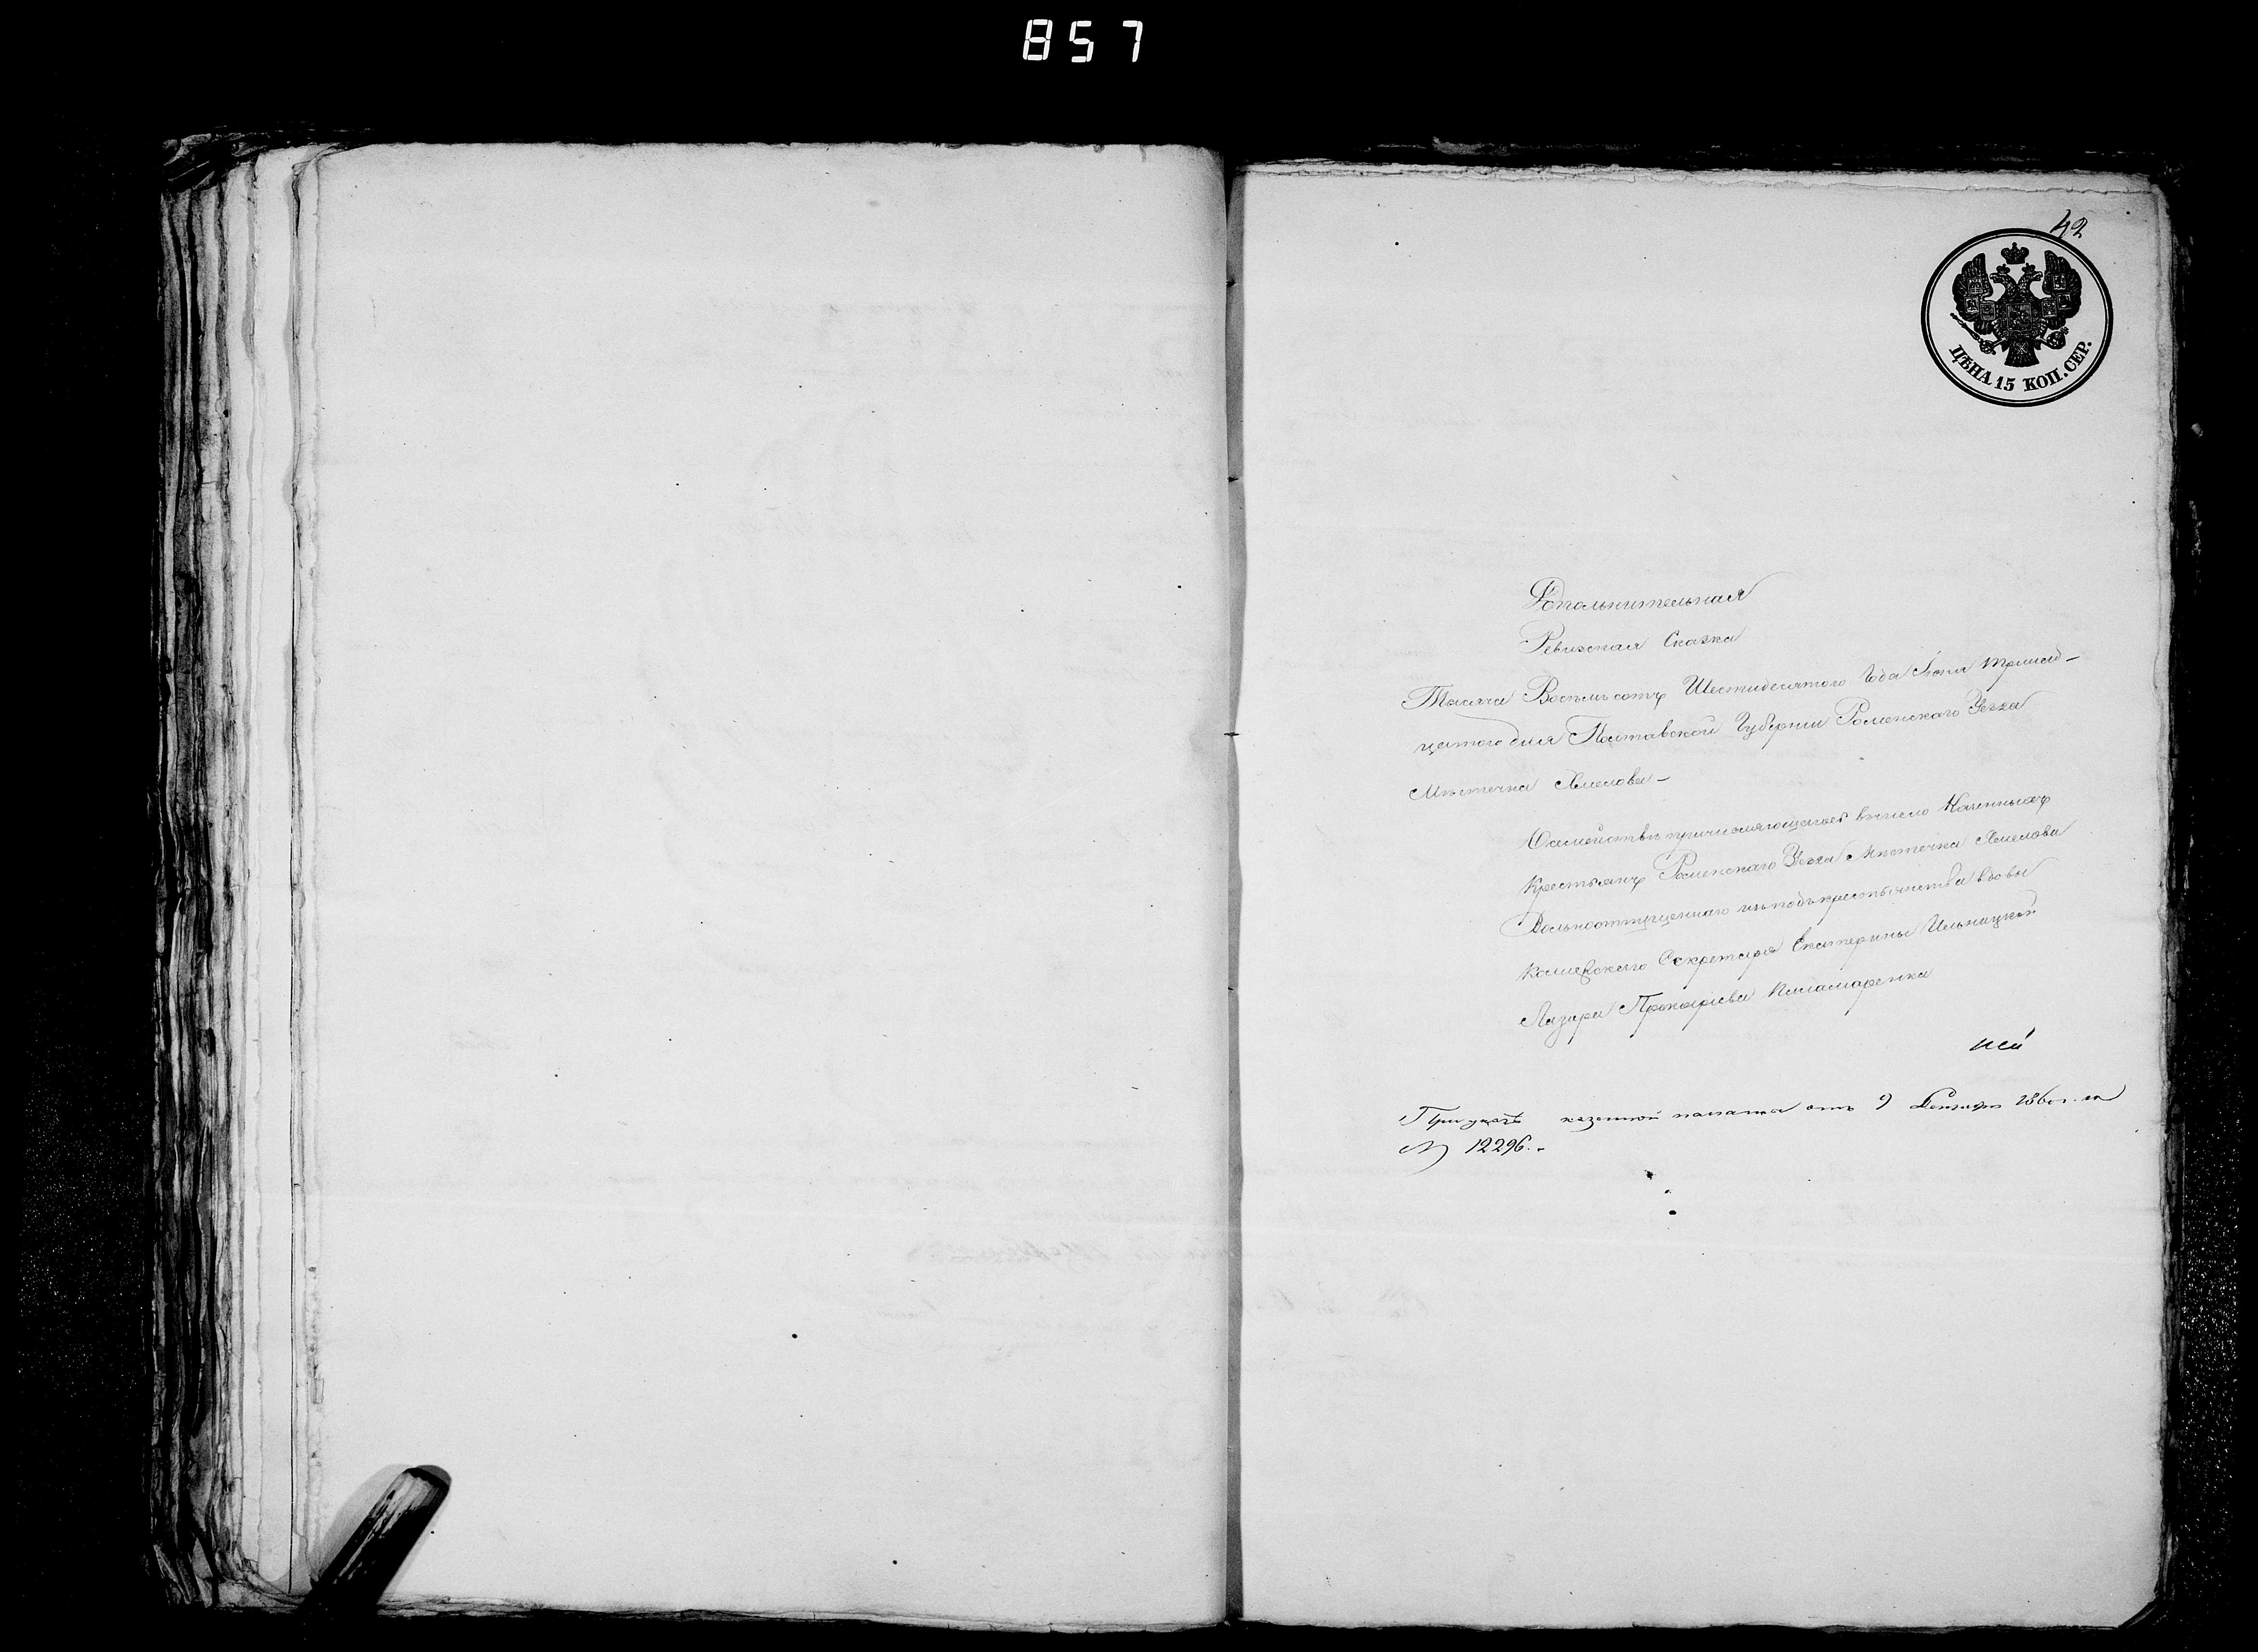 857
42
ЦѢНА 15 КОП. СЕР.
Дополнительная
Ревизская Сказка
Тысяча Восемьсотъ Шестидесятого Года Іюня тринад-
цатого дня Полтавской Губерніи Роменскаго Уезда
Мѣстечка Хмелова-
О семействѣ причисляющагося въ число Казенныхъ
Крестьянъ Роменскаго Уезда Мѣстечка Хмелова
Вольноотпущеннаго изъ подъ крестьянства вдовы
Колежскаго Секретаря Екатерины Ильницкой
Лазаря Прокофіева Паламаренка
При указѣ казенной палаты отъ 9 1860 г. за
№ 12296.-